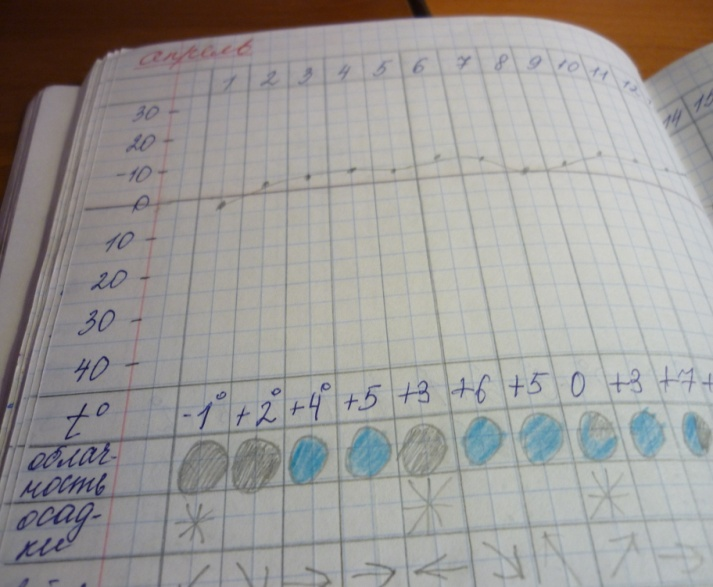 апрель
1 2 3 4 5 6 7 8 9 10 11 12
14 15
30
20
10
0
10
20
30
40
t° -1° +2° +4° +5 +3 +6 +5 0 +3 +7 +
облач-
ность
осад-
ки